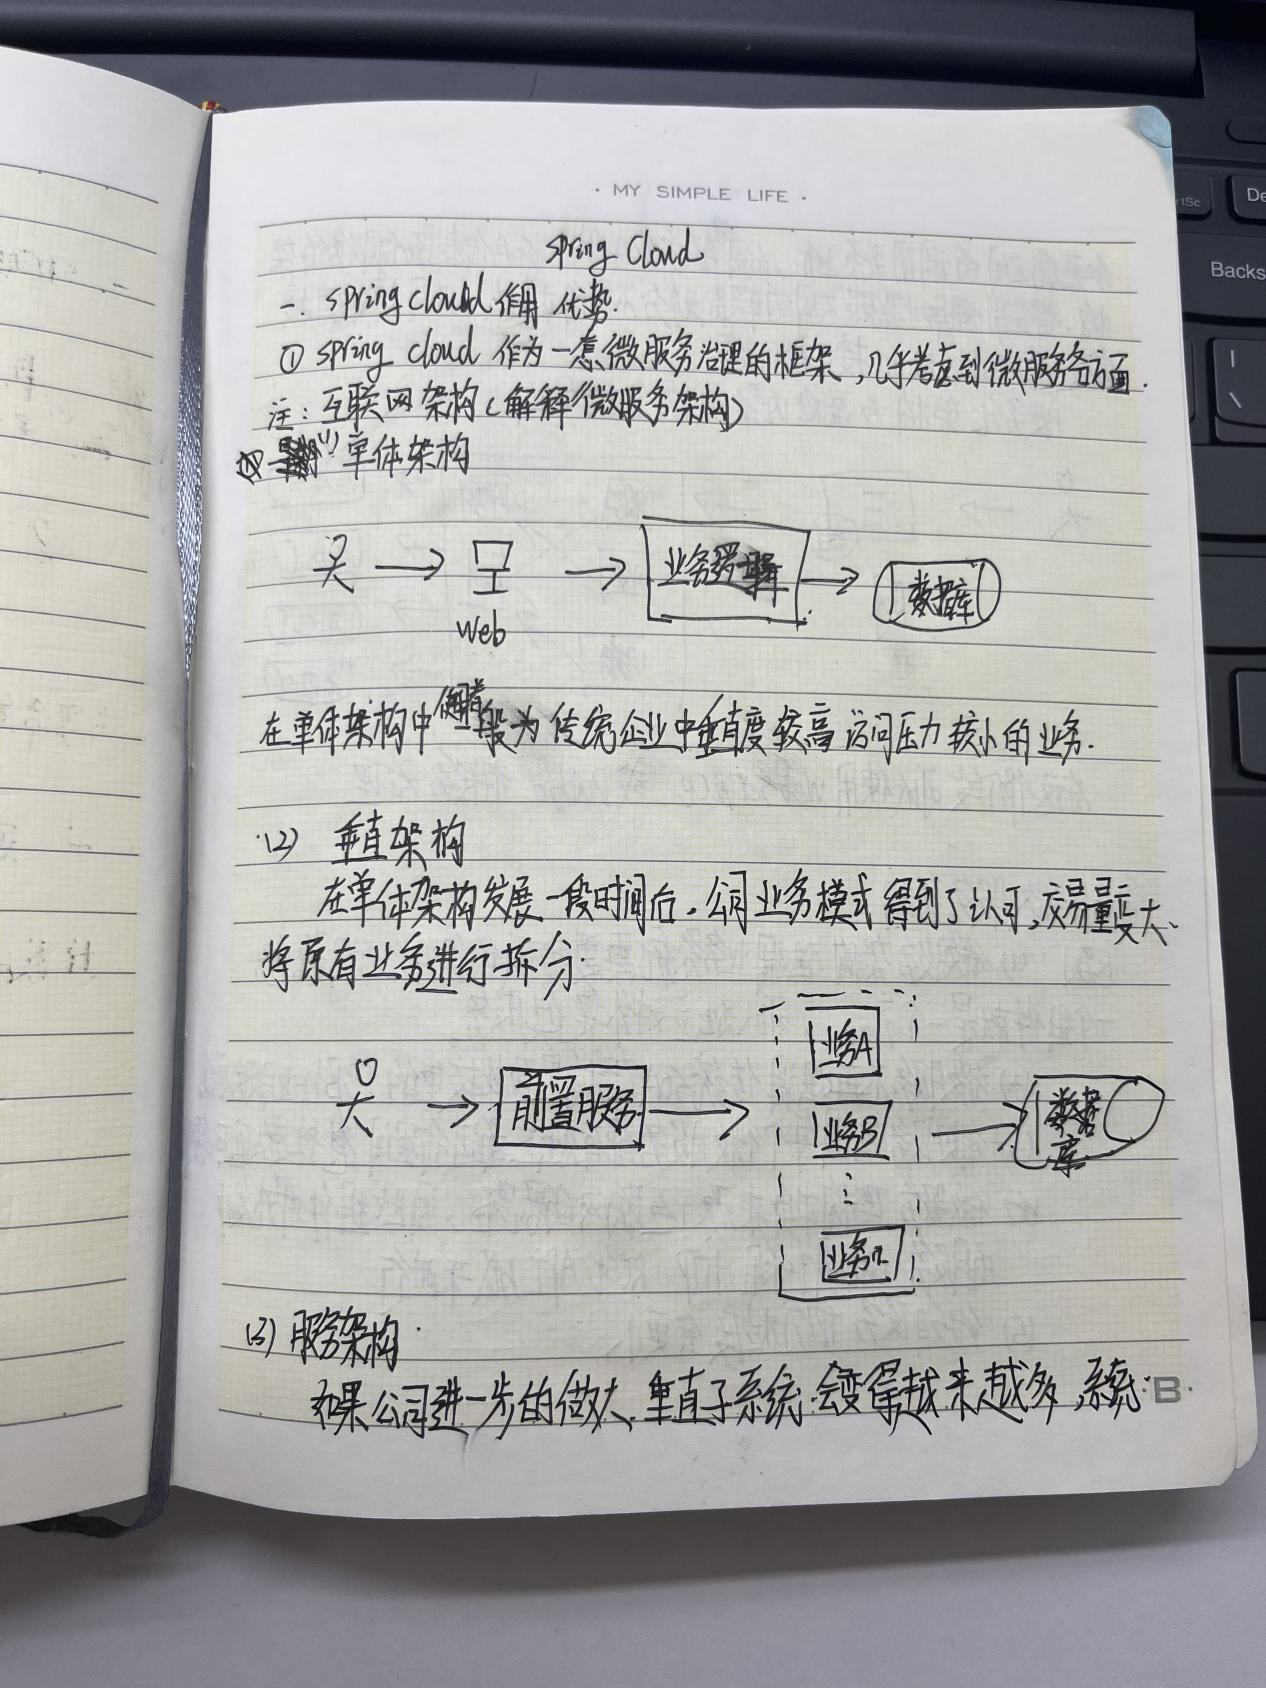 · MY SIMPLE LIFE ·
Spring Cloud
一. spring cloud 作用 优势.
① spring cloud 作为一套微服务治理的框架,几乎考虑到微服务各方面.
注: 互联网架构(解释微服务架构)
(1) 单体架构
web
业务逻辑
数据库
在单体架构中 使用者 一般为 传统企业中垂直度较高 访问压力较小的业务.
(2) 垂直架构
在单体架构发展一段时间后,公司业务模式得到了认可,交易量变大
将原有业务进行拆分.
前置服务
业务A
业务B
⋮
业务n
数据库
(3) 服务架构.
如果公司进一步的做大,垂直子系统会变得越来越多,系统
B
tSc
De
Backs